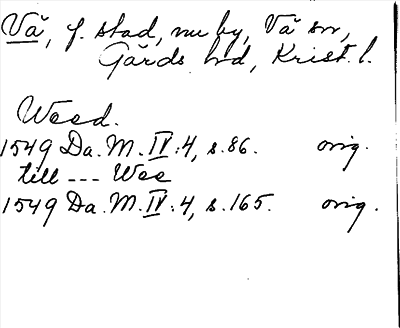 Vä, f. stad, nu by, Vä sn,
Gärds hd, Krist. l.
Weed.
1549 Da. M. IV: 4, s. 86. orig.
till --- Wee
1549 Da. M. IV: 4, s. 165. orig.